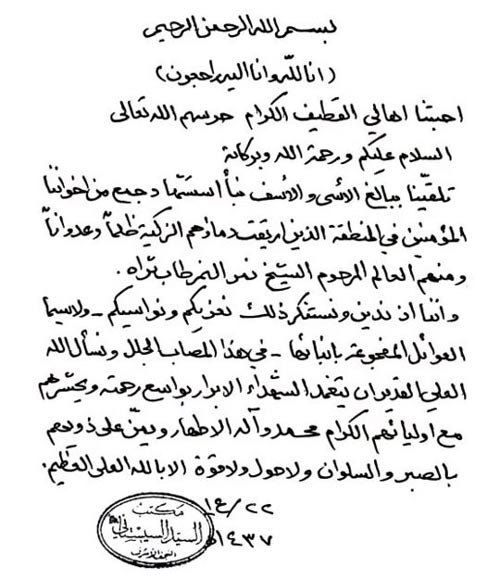 بسم الله الرحمن الرحيم
(انا لله وانا اليه راجعون)
احبتنا اهالي القطيف الكرام حرسهم الله تعالى
السلام عليكم ورحمة الله وبركاته
تلقينا ببالغ الأسى والأسف نبأ استشهاد جمع من اخواننا
المؤمنين في المنطقة الذين اريقت دماؤهم الزكية ظلماً وعدواناً
ومنهم العالم المرحوم الشيخ نمر النمر طاب ثراه.
واننا اذ ندين ونستنكر ذلك نعزيكم ونواسيكم - ولاسيما
العوائل المفجوعة بابنائها - في هذا المصاب الجلل ونسأل الله
العلي القدير ان يتغمد الشهداء الابرار بواسع رحمته ويحشرهم
مع اوليائهم الكرام محمد وآله الاطهار ويمنّ على ذويهم
بالصبر والسلوان ولاحول ولاقوة الا بالله العلي العظيم.
٢٢/ع١
١٤٣٧هـ
مكتب
السيد السيستاني
النجف الأشرف